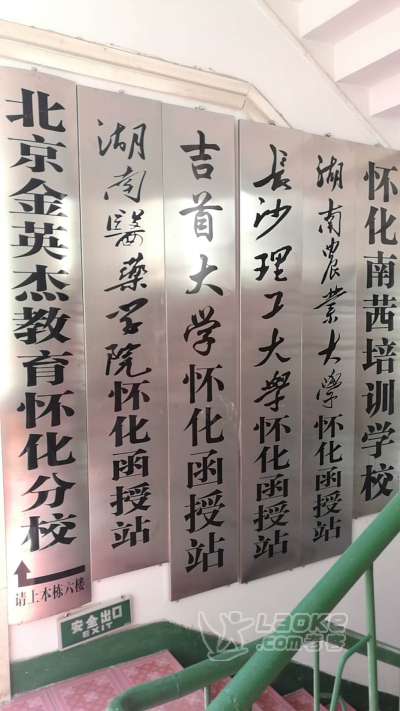 北京金英杰教育怀化分校
请上本栋六楼
湖南醫藥学院怀化函授站
吉首大学怀化函授站
長沙理工大學怀化函授站
湖南農業大學怀化函授站
怀化南茜培训学校
安全出口
EXIT
LAOKE
.com考客